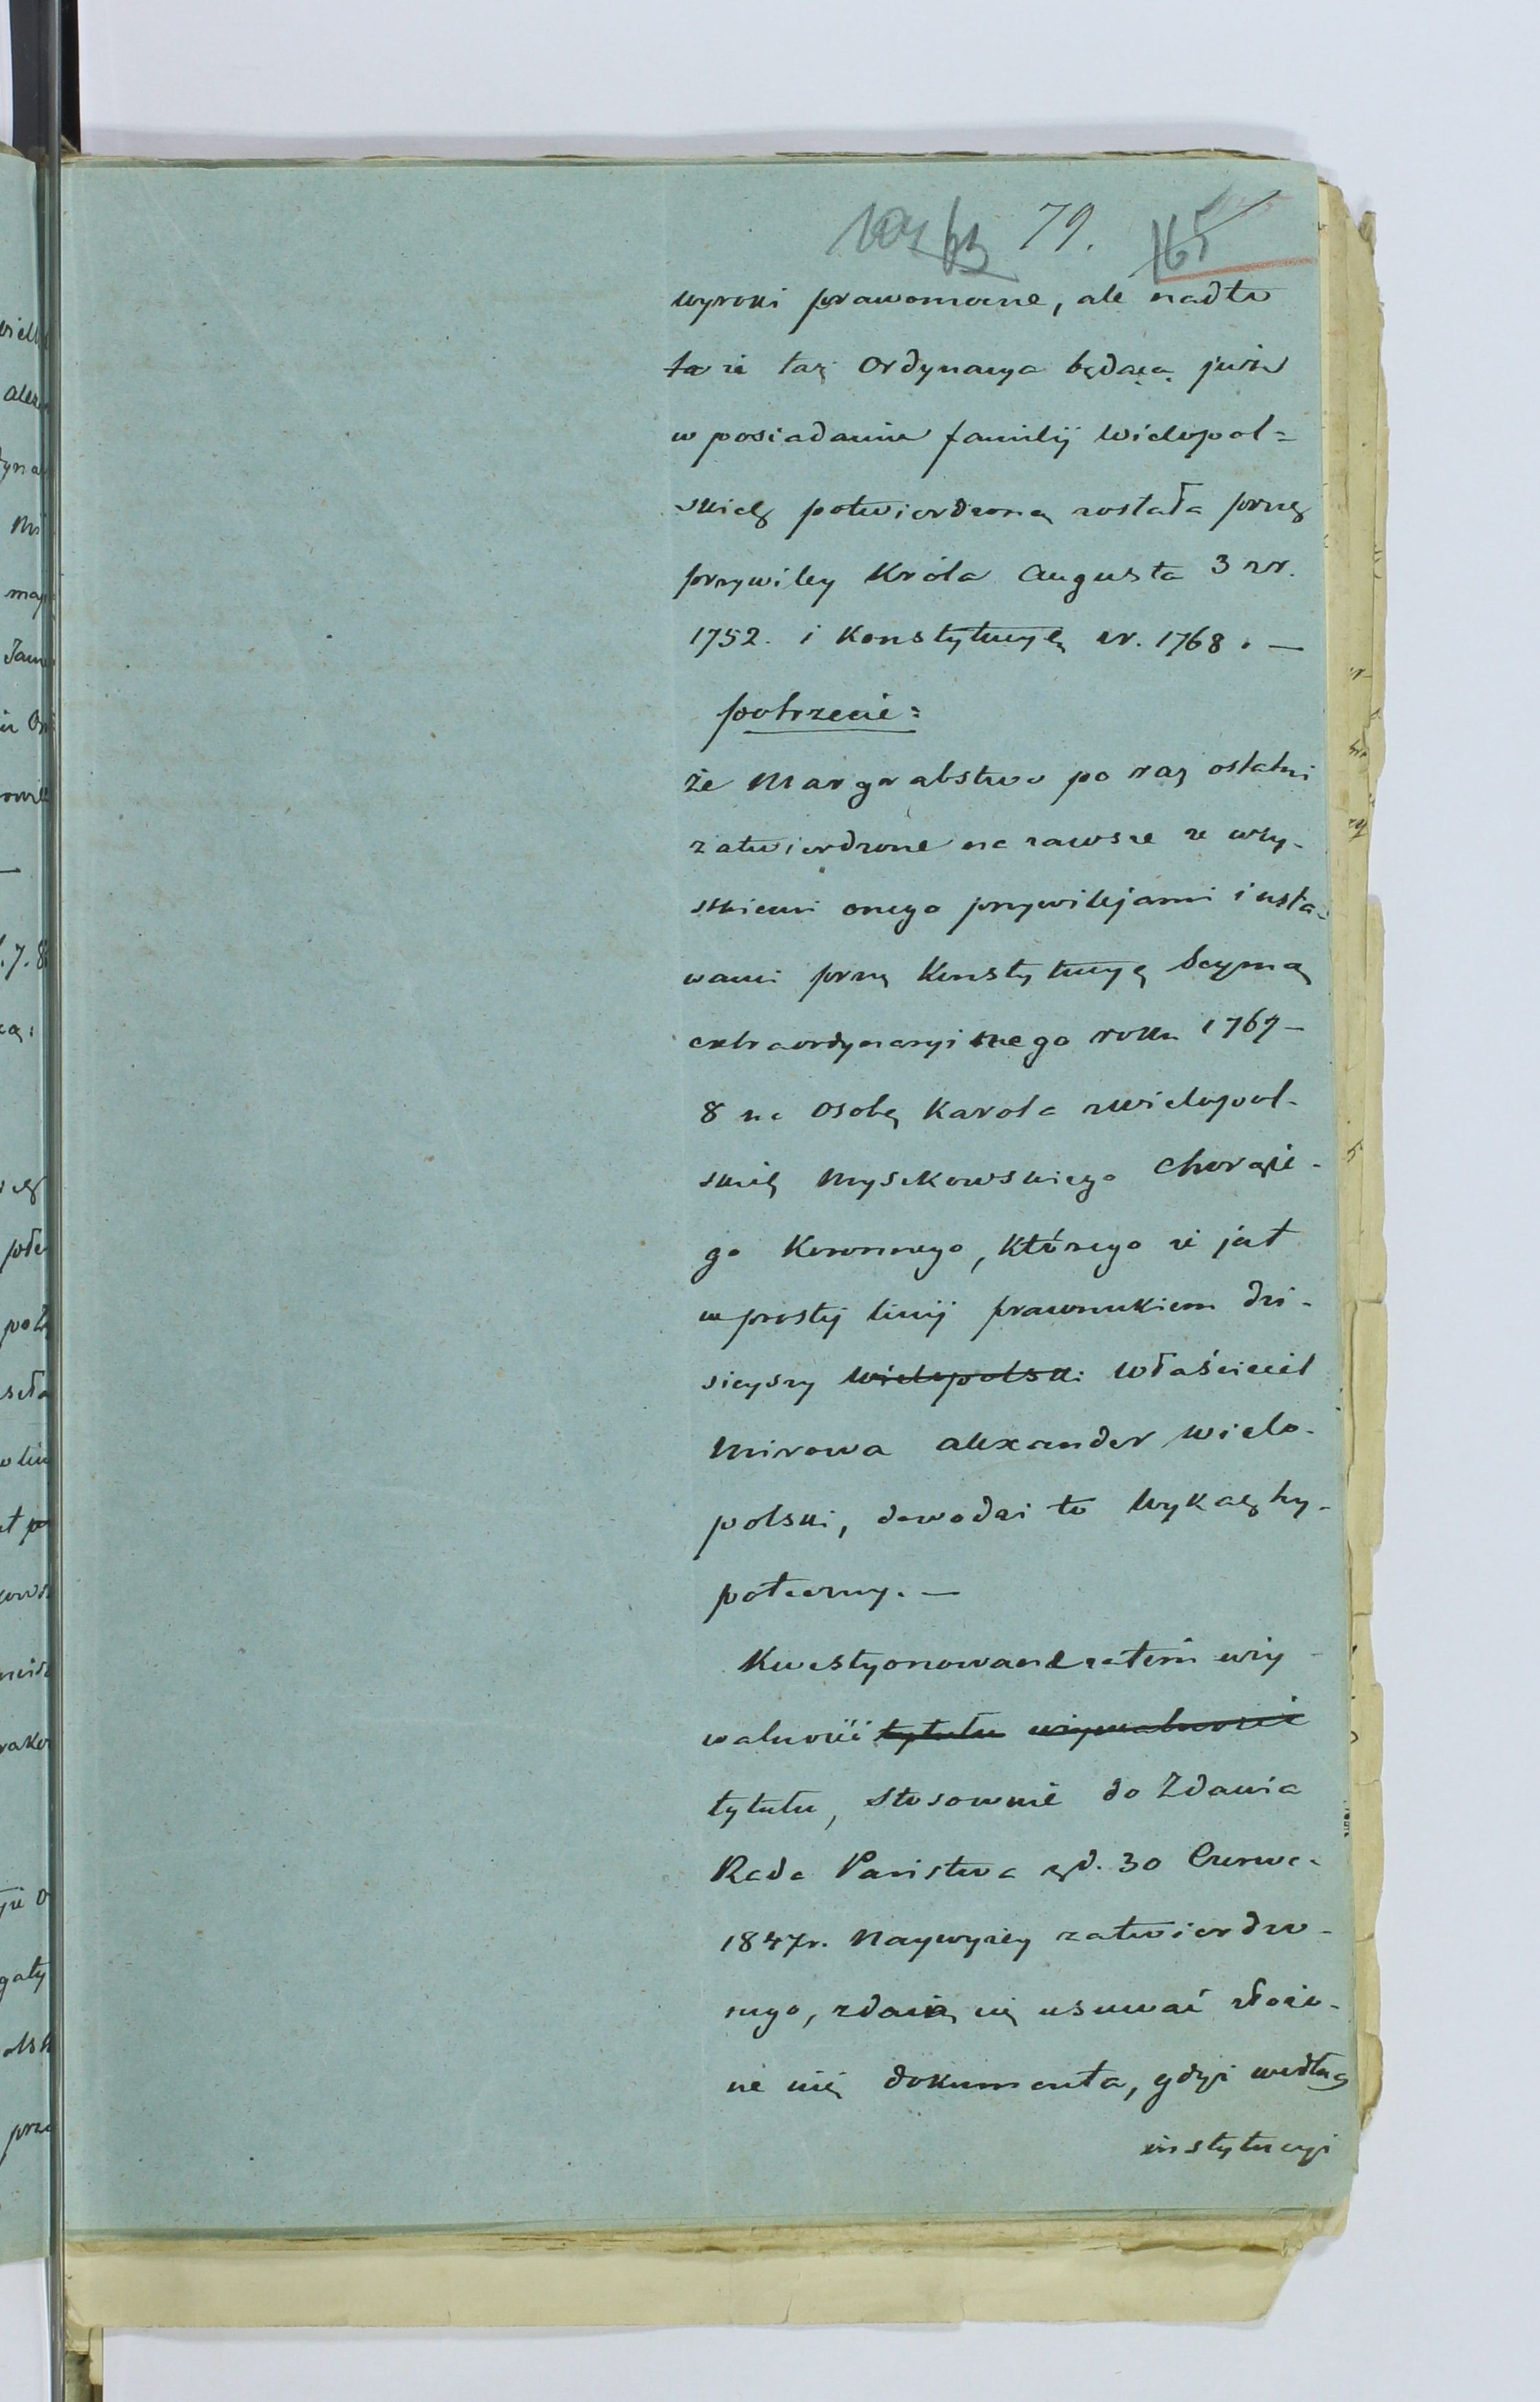 63 79. 165
wyroki prawomocne, ale nadto
to że taż Ordynacya będąca już
w posiadaniu familij Wielopol=
skich potwierdzoną została przez
przywiley Króla Augusta 3 z r.
1752. i Konstytucyą z r. 1768. —
potrzecie:
że Margrabstwo po raz ostatni
zatwierdzone na zawsze ze wszy-
stkiemi onego przywilejami i usta-
wami przez Konstytucyą Seymu
extraordynaryinego roku 1767-
8 na osobę Karola Wielopol-
skiego Myszkowskiego Chorąże-
go Koronnego, którego że jest
w prostej linij prawnukiem dzi-
sieyszy Wielopolski Właściciel
Mirowa Alexander Wielo-
polski, dowodzi to Wykaz hy-
poteczny. —
Kwestyonowanie zatem uży-
walności tytułu używalności
tytułu, stosownie do Zdania
Rada Państwa z d. 30 Czerwca
1847 r. Naywyżey zatwierdzo-
nego, zdaią się usuwać złożo-
ne nią dokumenta, gdyż według
instytucyi